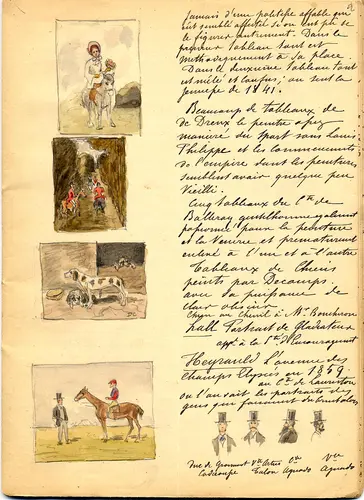 Jamais d'une politesse affable qui
eut semblé affectée si on eut pu
se le figurer autrement. Dans le
premier Tableau tout est
méthodiquement à sa place
Dans le deuxième Tableau tout
est mêlé et confus, on sent la
jeunesse de 1841.
Beaucoup de tableaux de
de Dreux le peintre assez
maniéré du Sport sous Louis
Philippe et les commencements
de l'empire dont les peintures
semblent avoir quelque peu
vieilli.
Cinq tableaux du Cte de
Balleroy gentilhomme
passionné pour la peinture
et la vénerie et prématurément
enlevé à l'une et à l'autre
Tableaux de Chiens
peints par Decamps.
avec sa puissance de
clair obscur.
Chien au Chenil à Mr. Boucheron
Hall Portrait de Gladiateur
appt. à la Sté d'Encouragement
Heyrauld L'avenue des
Champs Elysées en 1859
au Cte de Lauriston
où l'on voit les portraits des
gens qui
Duc de Gramont
Caderousse
Vte Artus
Talon
Aguado
Vte
Aguado
DC